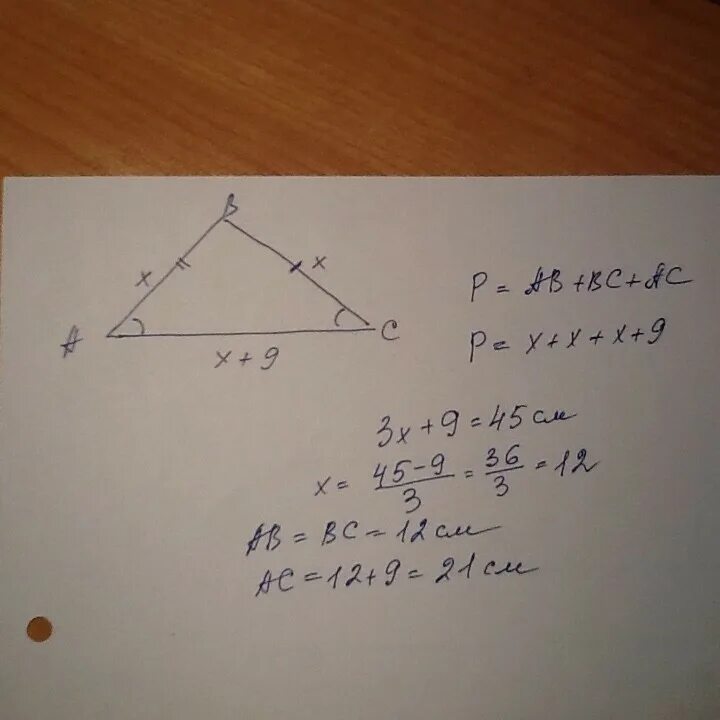 B
x x
A C
x + 9
P = AB + BC + AC
P = x + x + x + 9
3x + 9 = 45 см
x = \frac{45-9}{3} = \frac{36}{3} = 12
AB = BC = 12 см
AC = 12 + 9 = 21 см